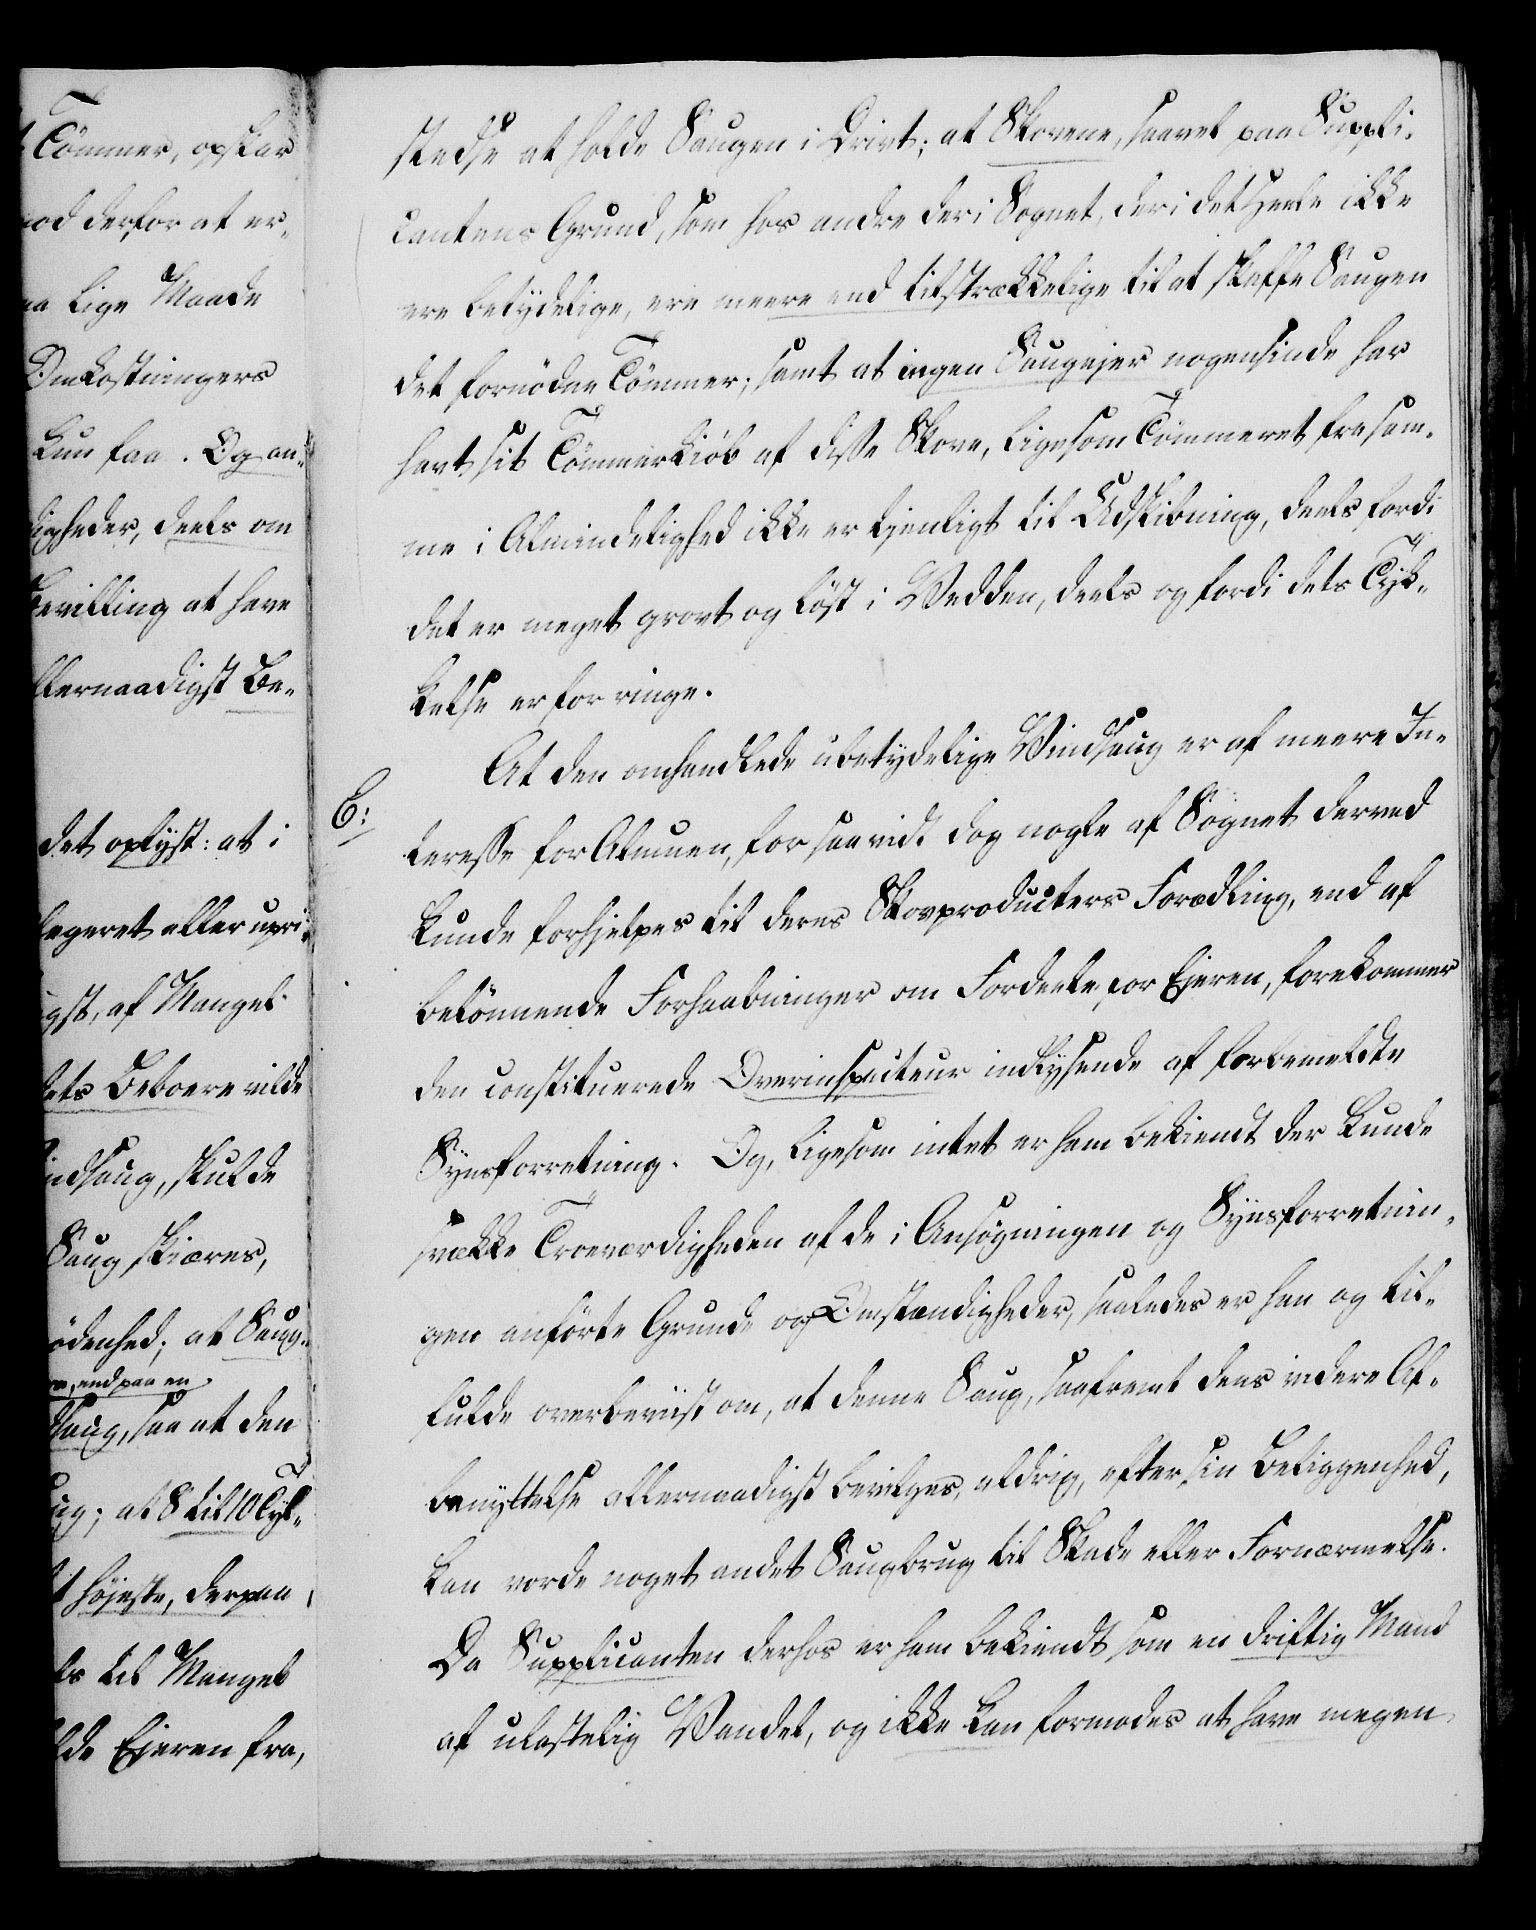 Tömmer, opskar
od derfor at er-
aa lige Maade
Omkostningers
kun faa. Og an-
igheder, deels om
Bevilling at have
llernaadigst Be-
det oplyst: at i
legeret eller upri-
gst, af Mangel
ets Beboere vilde
indsaug, skulde
Saug skiæres,
ödenhed; at Saug-
, end paa en
saug, saa at den
ug; at 8 til 10 Tyl-
t höjeste, derpaa
ls til Mangel
lde Ejeren fra,
stedse at holde Saugen i Drivt; at Skovene, saavel paa Suppli-
cantens Grund, som hos andre der i Sognet, der i det Heele ikke
ere betydelige, ere meere end tilstrækkelige til at skaffe Saugen
det fornödne Tömmer; samt at ingen Saugejer nogensinde har
havt sit Tömmerkiöb af disse Skove, ligesom Tömmeret fra sam-
me i Almindelighed ikke er tjenligt til Udskibning, deels fordi
det er meget grovt og löst i Vedden, deels og fordi dets Tyk-
kelse er for ringe.
At den omhandlede ubetydelige Vindsaug er af meere In-
C:
teresse for Almuen, for saavidt dog nogle af Sognet derved
kunde forhjelpes til deres Skovproducters Forædling, end af
belönnende Forhaabninger om Fordeele for Ejeren, forekommer
den constituerede Overinspecteur indlysende af forbemeldte
Synsforretning. Og, ligesom intet er ham bekiendt der kunde
svække Troeværdigheden af de i Ansøgningen og Synsforretnin-
gen anförte Grunde og Omstændigheder, saaledes er han og til-
fulde overbeviist om, at denne Saug, saafremt dens videre Af-
benyttelse allernaadigst bevilges, aldrig, efter sin Beliggenhed,
kan vorde noget andet Saugbrug til Skade eller Fornærmelse.
Da Supplicanten derhos er ham bekiendt som en driftig Mand
af ulastelig Vandel, og ikke kan formodes at have megen